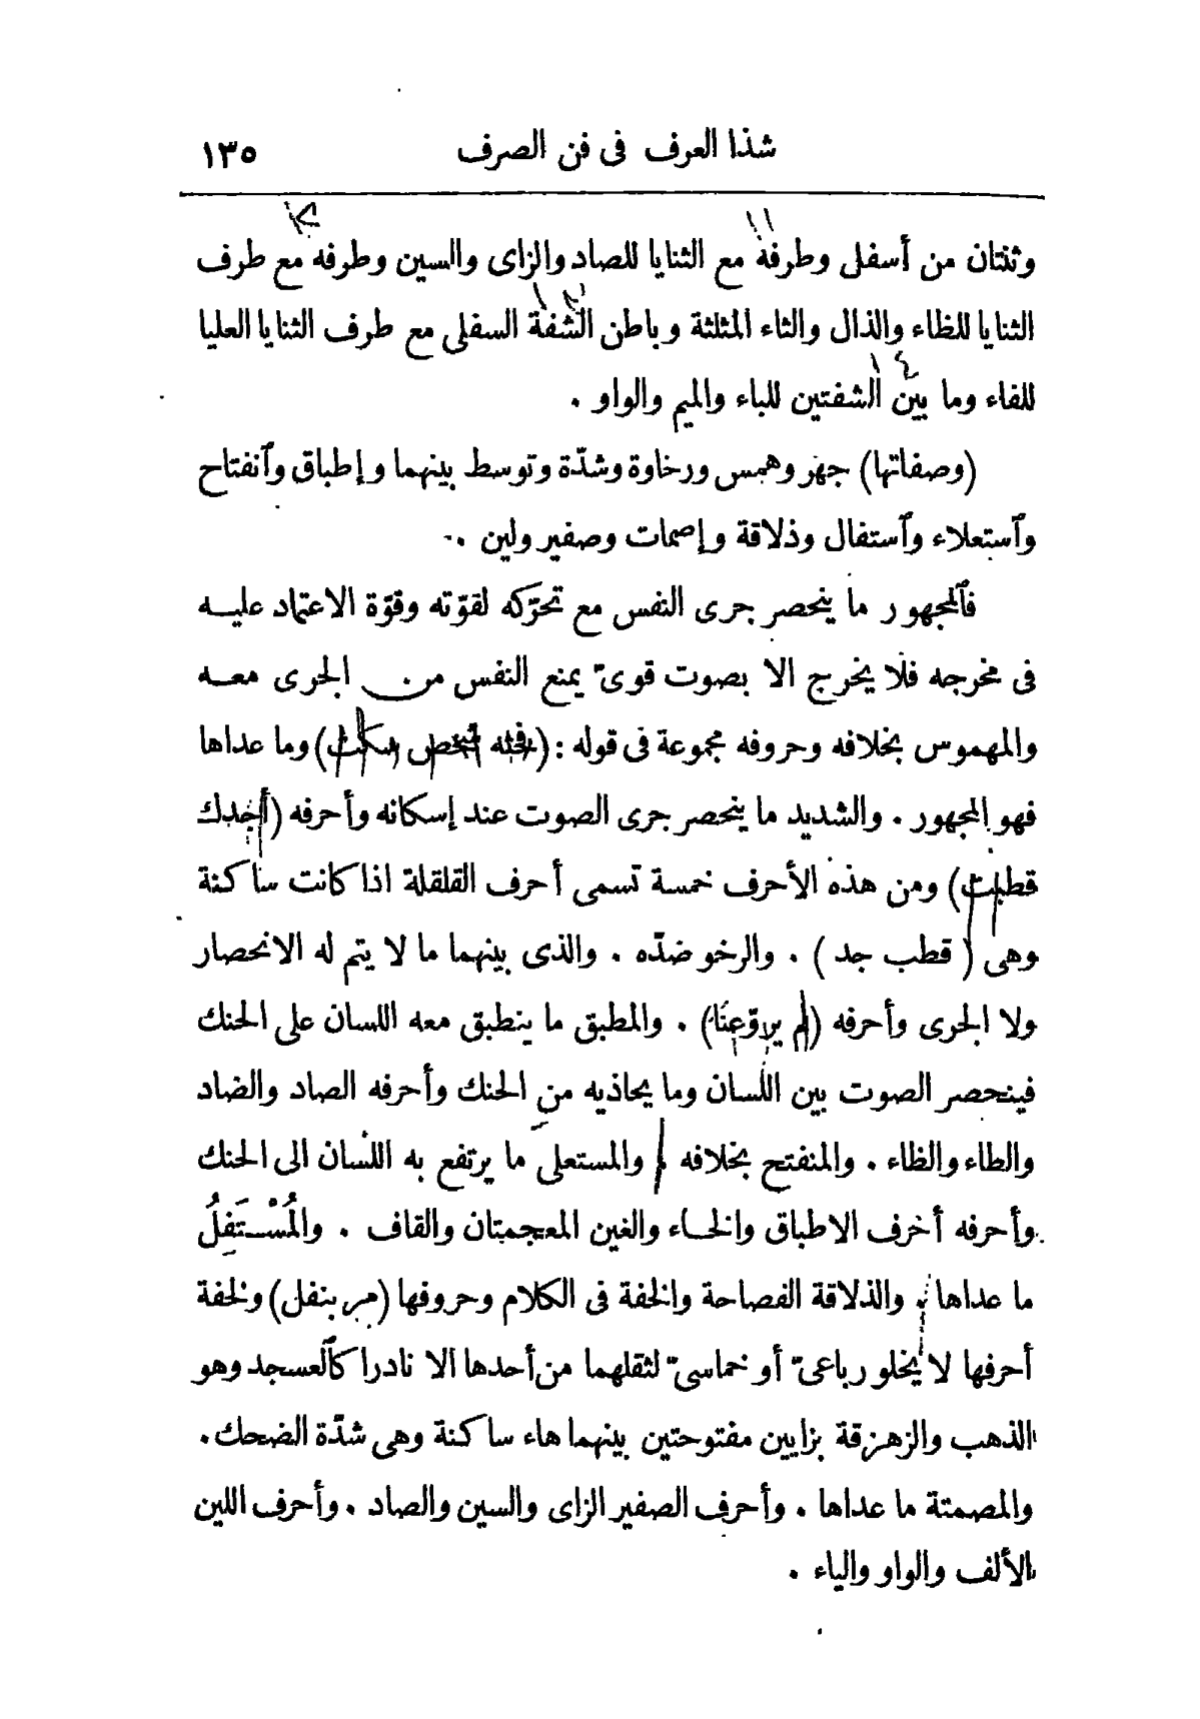 شذا العرف فى فن الصرف ١٣٥
١١ ١٢
وثنتان من أسفلى وطرفه مع الثنايا للصاد والزاى والسين وطرفه مع طرف
١٣
الثنايا للظاء والذال والثاء المثلثة وباطن الشفة السفلى مع طرف الثنايا العليا
١٤
للفاء وما بين الشفتين للباء والميم والواو .
(وصفاتها) جهر وهمس ورخاوة وشدّة وتوسط بينهما وإطباق وٱنفتاح
وٱستعلاء وٱستفال وذلاقة وإصمات وصفير ولين .
فٱلمجهور ما ينحصر جرى النفس مع تحرّكه لقوّته وقوّة الاعتماد عليه
فى مخرجه فلا يخرج الا بصوت قوىّ يمنع النفس من الجرى معه
والمهموس بخلافه وحروفه مجموعة فى قوله : (فحثه شخص سكت) وما عداها
فهو المجهور . والشديد ما ينحصر جرى الصوت عند إسكانه وأحرفه (أجدك
قطبت) ومن هذه الأحرف خمسة تسمى أحرف القلقلة اذا كانت ساكنة
وهى ( قطب جد ) . والرخو ضدّه . والذى بينهما ما لا يتم له الانحصار
ولا الجرى وأحرفه (لم يروّعنا) . والمطبق ما ينطبق معه اللسان على الحنك
فينحصر الصوت بين اللسان وما يحاذيه من الحنك وأحرفه الصاد والضاد
والطاء والظاء . والمنفتح بخلافه . والمستعلى ما يرتفع به اللسان الى الحنك
وأحرفه أحرف الاطباق والخاء والغين المعجمتان والقاف . والمُسْتَفِلُ
ما عداها . والذلاقة الفصاحة والخفة فى الكلام وحروفها (مر بنفل) ولخفة
أحرفها لا يخلو رباعىّ أو خماسىّ لثقلهما من أحدها الا نادرا كٱلعسجد وهو
الذهب والزهزقة بزايين مفتوحتين بينهما هاء ساكنة وهى شدّة الضحك .
والمصمتة ما عداها . وأحرف الصفير الزاى والسين والصاد . وأحرف اللين
الألف والواو والياء .